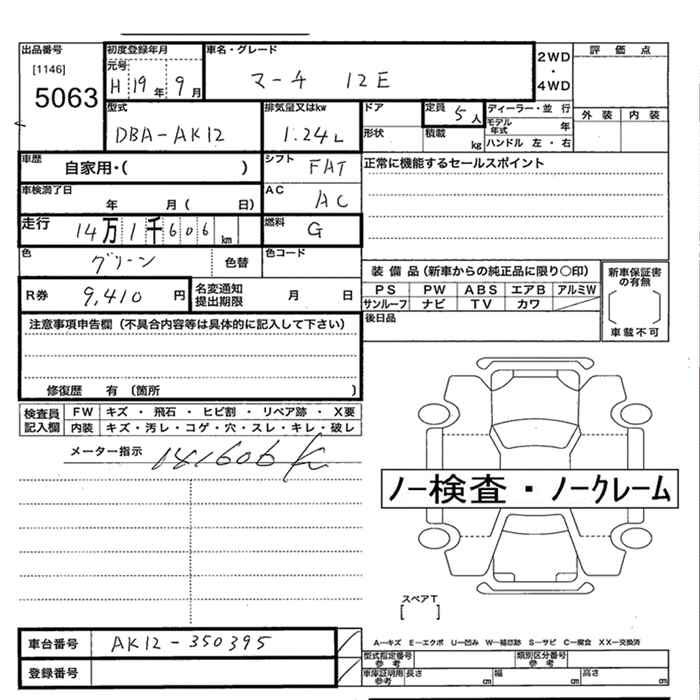 出品番号
[1146]
5063
初度登録年月
元号
H 19 年 9 月
車名・グレード
マーチ 12E
2WD
・
4WD
評 価 点
外 装 内 装
型式
DBA-AK12
排気量又はkw
1.24L
ドア
形状
定員 5 人
積載 kg
ディーラー・並 行
モデル年式 年
ハンドル 左 ・ 右
車歴
自家用・( )
シフト
FAT
正常に機能するセールスポイント
車検満了日
年 月 ( 日)
AC
AC
走行
14万1千606 km
燃料
G
色
グリーン
色替
色コード
R券
9,410 円
名変通知
提出期限
月 日
装 備 品 (新車からの純正品に限り○印)
PS PW ABS エアB アルミW
サンルーフ ナビ TV カワ
後日品
新車保証書
の有無
車載不可
注意事項申告欄 (不具合内容等は具体的に記入して下さい)
修復歴 有 (箇所 )
検査員
記入欄
FW キズ ・ 飛石 ・ ヒビ割 ・ リペア跡 ・ X要
内装 キズ・汚レ・コゲ・穴・スレ・キレ・破レ
メーター指示
141606 k
ノー検査・ノークレーム
スペアT
[ ]
車台番号
AK12-350395
登録番号
A―キズ E―エクボ U―凹み W―補修跡 S―サビ C―腐食 XX―交換済
型式指定番号
参 考
類別区分番号
参 考
車庫証明用
参考
長さ cm 幅 cm 高さ cm